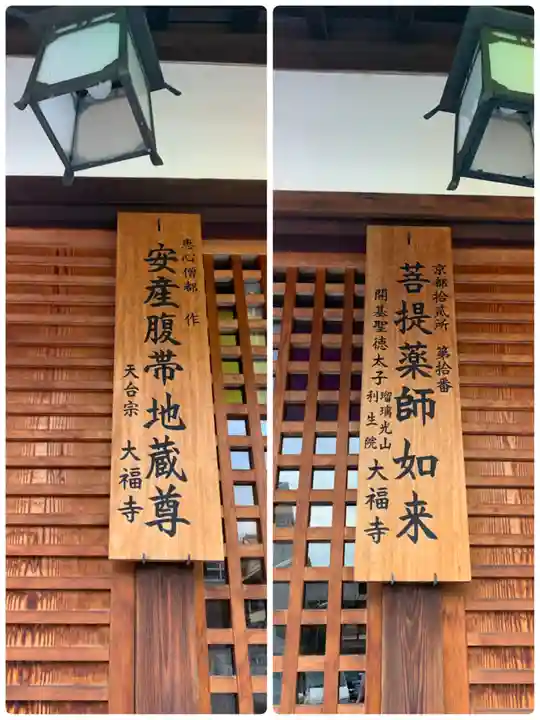 恵心僧都 作
安産腹帯地蔵尊
天台宗 大福寺
京都拾弐所 第拾番
菩提薬師如来
開基聖徳太子
瑠璃光山
利生院
大福寺